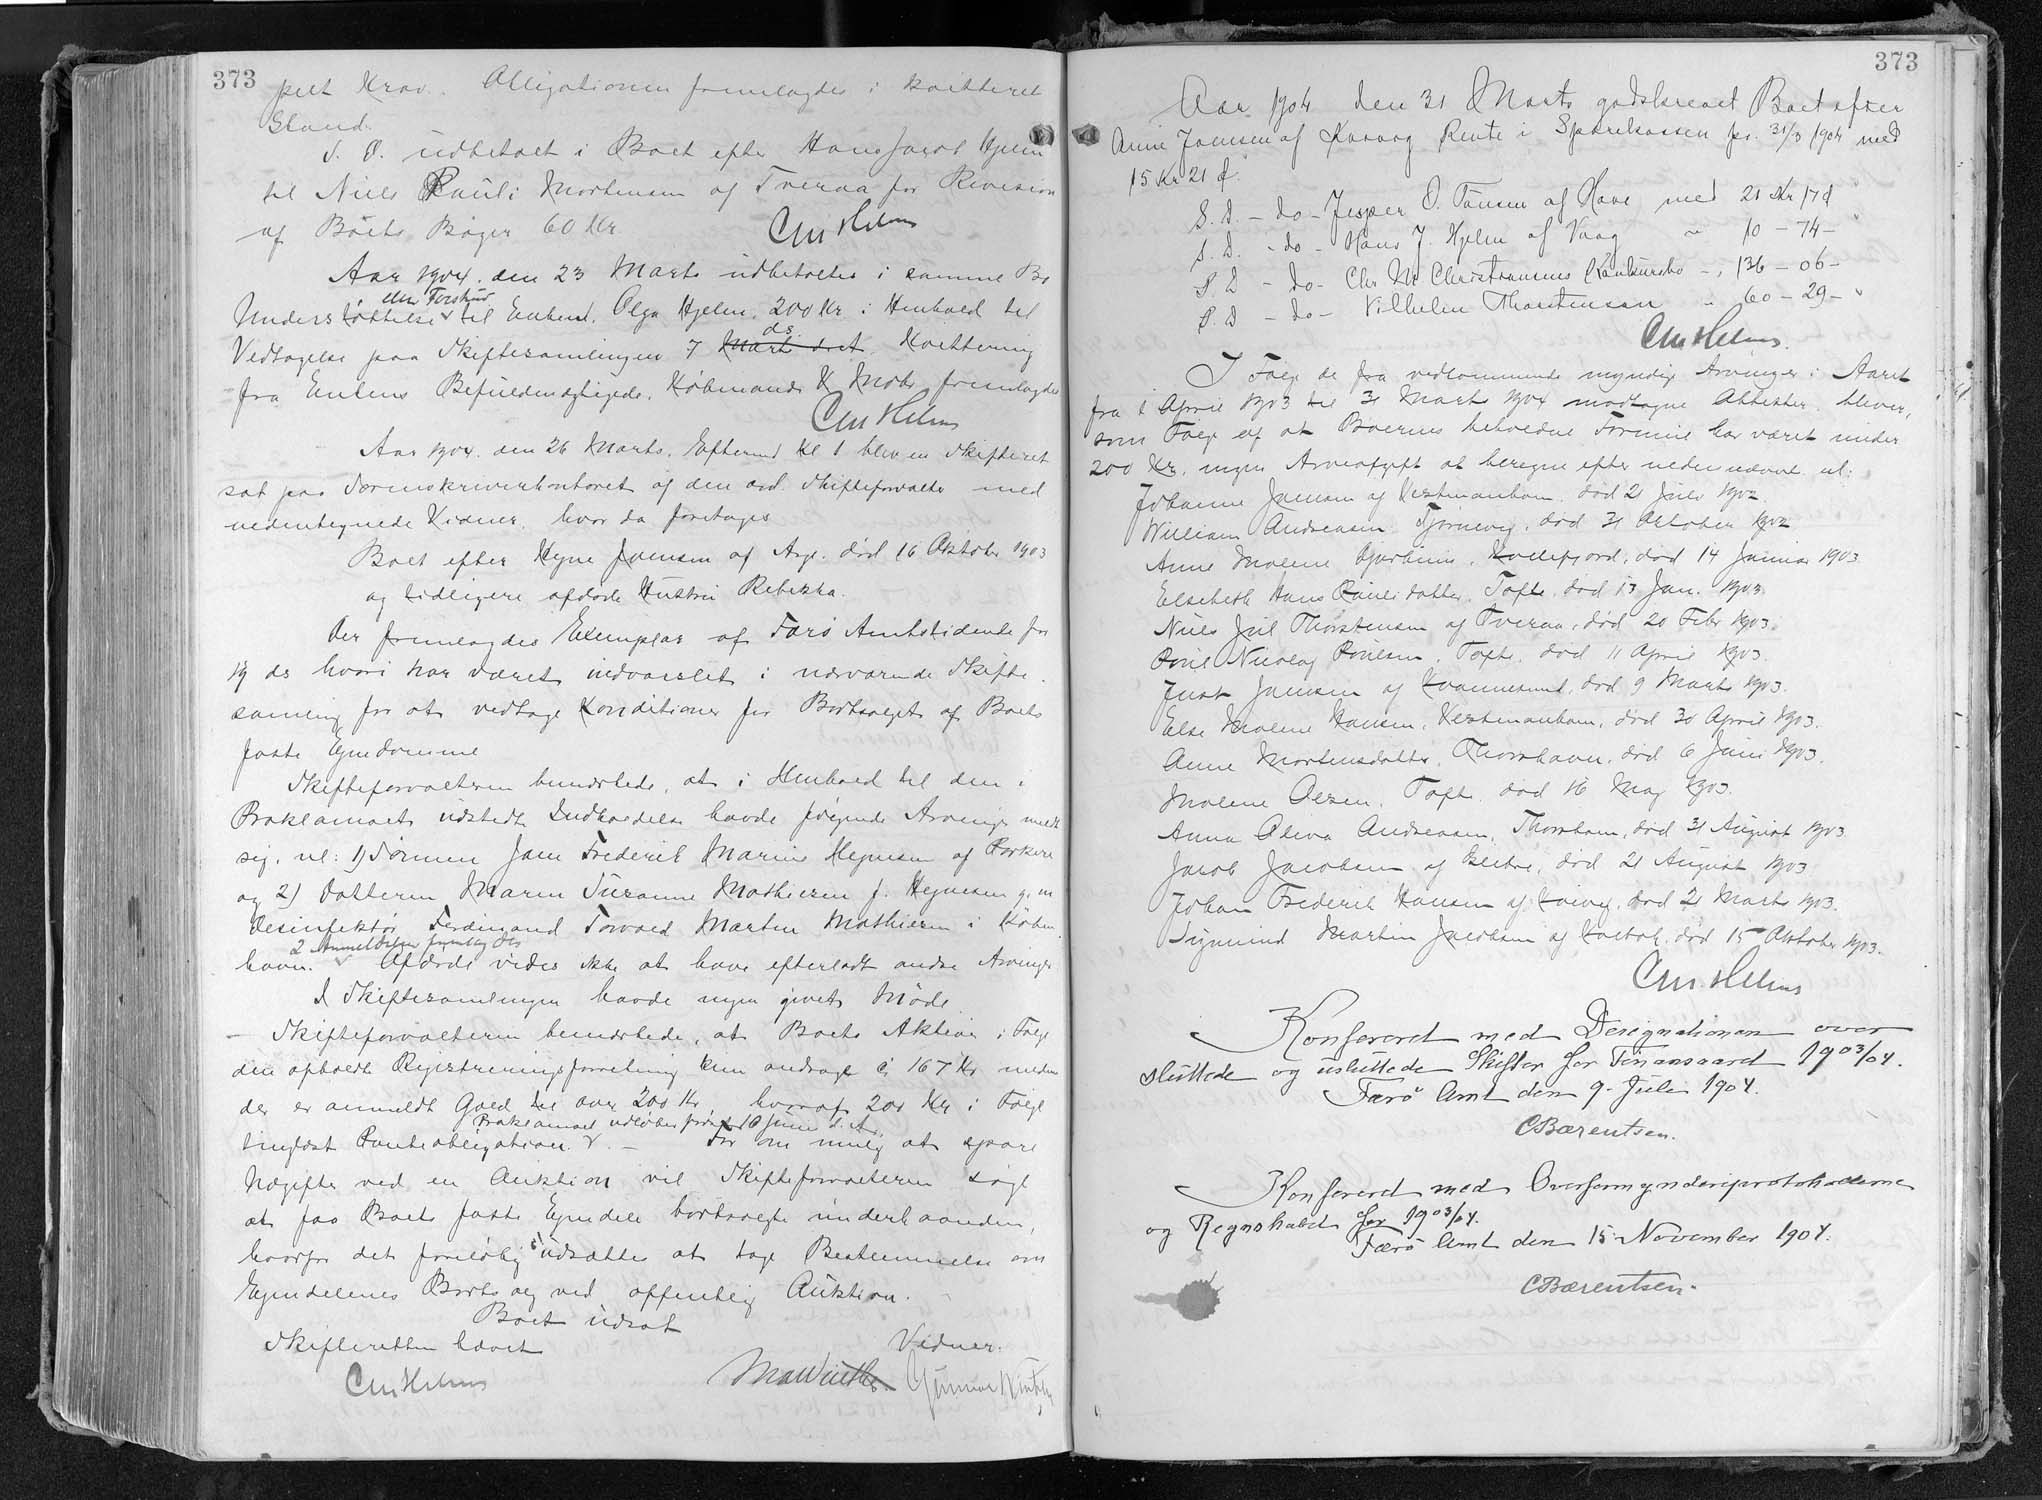 373
pelt Krav. Obligationen fremlagdes i kvitteret
Stand.
S. D. udbetalt i Boet efter Hans Jacob Hjelm
til Niels Pauli Mortensen af Tveraa for Revision
af Boets Bøger 60 Kr.
Chr Helms
Aar 1904 den 23 Marts udbetaltes i samme Bo
eller Forskud
Understøttelse til Enken Olga Hjelm 200 Kr i Henhold til
Vedtagelse paa Skiftesamlingen 7 ds. Kvittering
fra Enkens Befuldmægtigede, Købmand fremlagdes
Chr Helms
Aar 1904 den 26 Marts, Eftermd Kl 1 blev en Skifteret
sat paa Sorenskriverkontoret af den ord. Skifteforvalter med
undertegnede Vidner, hvor da foretoges
Boet efter Hejne Joensen af Arge, død 16 Oktober 1903
og tidligere afdøde Hustru Rebekka.
Der fremlagdes Exemplar af Færø Amtstidende for
19 ds hvori har været indvarslet i nærværende Skifte
samling for at vedtage Konditioner for Bortsalget af Boets
faste Ejendomme
Skifteforvalteren bemærkede, at i Henhold til den i
Proklamaet udstedte Indkaldelse havde følgende Arvinger meldt
sig, nl: 1) Sønnen Joen Frederik Marius Hejnesen af Porkere
og 2) Datteren Maren Susanne Mathiesen f. Hejnesen g. m.
Desinfektør Ferdinand Torvald Morten Mathiesen i Køben
2 Anmeldelser fremlagdes
havn. Afdøde vides ikke at have efterladt andre Arvinger
I Skiftesamlingen havde ingen givet Møde
Skifteforvalteren bemærkede, at Boets Aktiva i Følge
den afholdte Registreringsforretning kun androge c. 167 Kr medens
der er anmeldt Gæld til over 200 Kr hvoraf 200 Kr i Følge
Proklamaet udløber først 16 Juni d. A.
tinglæst Panteobligation. - For om mulig at spare
Udgifter ved en Auktion vil Skifteforvalteren søge
at faa Boets faste Ejendele bortsolgt underhaanden,
hvorfor det foreløbig udsattes at tage Bestemmelse om
Ejendelenes Bortsalg ved offentlig Auktion.
Boet udsat
Skifteretten hævet
Vidner:
Chr Helms
Gunnar
373
Aar 1904 den 31 Marts godskrevet Boet efter
Anne Joensen af Kvaag Rente i Sparekassen pr. 31/3 1904 med
15 Kr 21 Ø.
S. D. - do - Jesper O. Tausen af Hove med 21 Kr 17 Ø
S. D. - do - Hans J. Hjelm af Vaag " 10 - 74 -
S. D - do - Chr M Christiansens Konkursbo - 136 - 06 -
S. D - do - Vilhelm Thorstensen " 60 - 29 - "
Chr Helms.
I Følge de fra vedkommende myndige Arvinger i Aaret
fra 1 April 1903 til 31 Marts 1904 modtagne Attester bliver,
som Følge af at Boernes beholdne Formue har været under
200 Kr, ingen Arveafgift at beregne efter nedennævnte nl:
Johanne Joensen af Vestmanhavn, død 21 Juli 1902
William Andreasen Tjørnevig, død 31 Oktober 1902
Anne Malene Djurhuus, Kollefjord, død 14 Januar 1903
Elsebeth Hans Paulidatter, Tofte, død 13 Jan. 1903
Niels Juul Thorstensen af Tveraa, død 20 Febr 1903.
Poul Nicolaj Poulsen, Tofte, død 11 April 1903
Just Joensen af Kvannesund, død 9 Marts 1903.
Else Malene Hansen, Vestmanhavn, død 30 April 1903.
Anne Mortensdatter, Thorshavn, død 6 Juni 1903.
Malene Olsen, Tofte, død 16 Maj 1903.
Anna Oliva Andreasen, Thorshavn, død 31 August 1903
Jacob Jacobsen af død 21 August 1903
Johan Frederik Hansen af død 21 Marts 1903.
Sigmund Martin Jacobsen af død 15 Oktober 1903.
Chr. Helms
Konfereret med Designationen over
sluttede og usluttede Skifter for Finansaaret 1903/04.
Færø Amt den 9. Juli 1904.
CBærentsen.
Konfereret med Overformynderiprotokollerne
og Regnskabet for 1903/04.
Færø Amt den 15 November 1904.
CBærentsen.